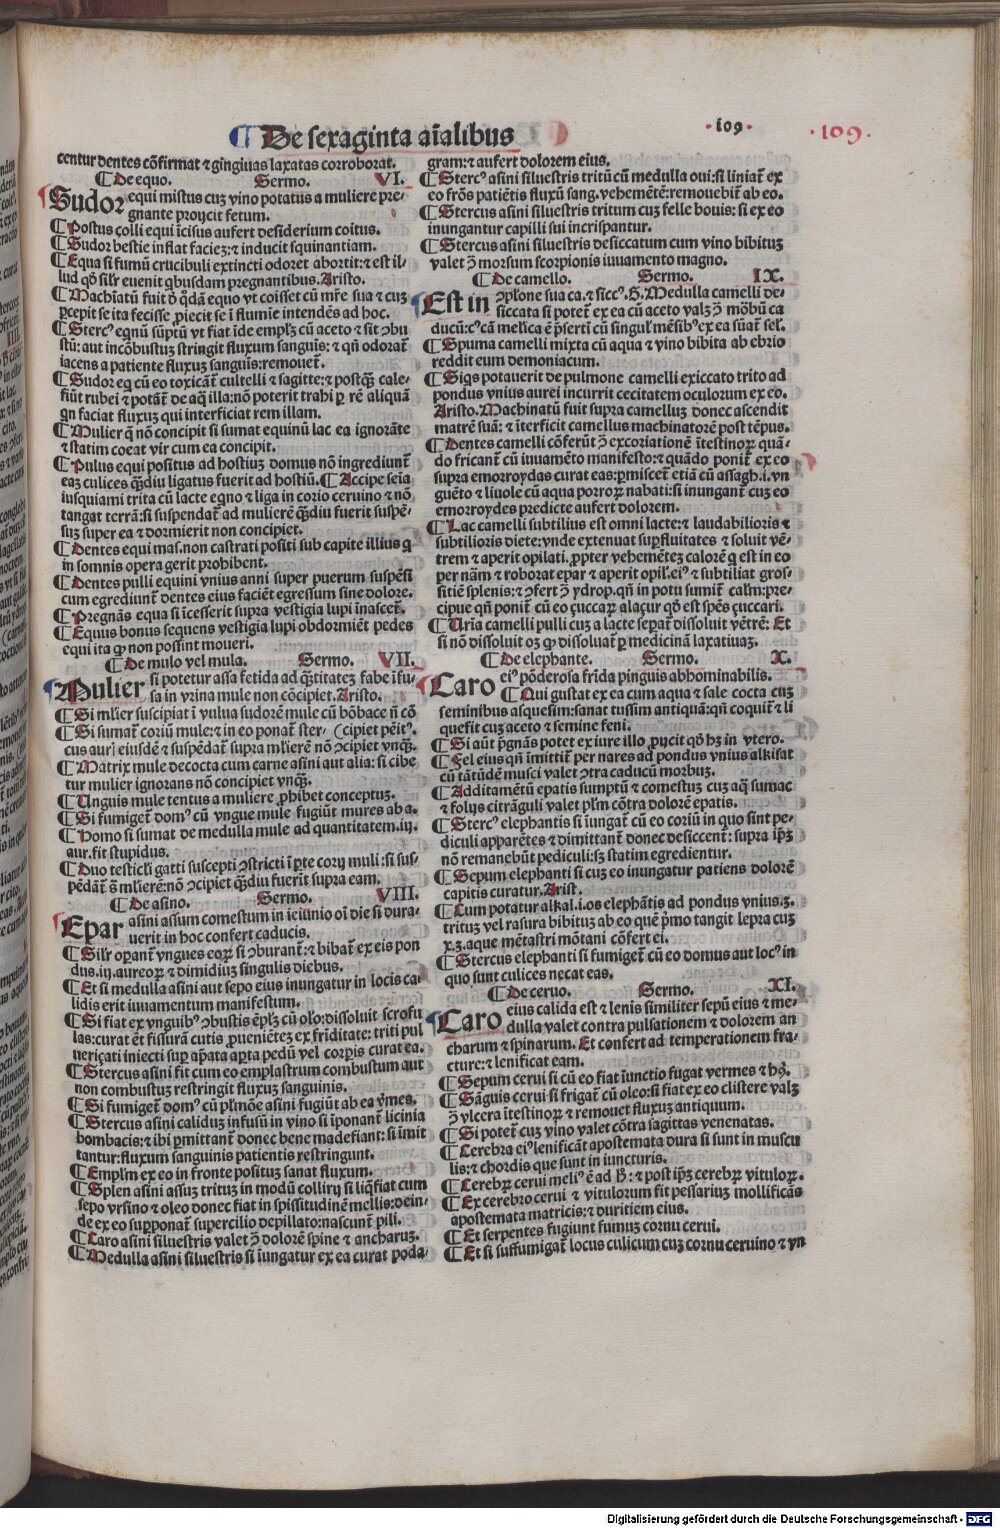 De sexaginta aīalibus
·109·
·109·
centur dentes cōfirmat ⁊ gingiuas laxatas corroborat.
¶ De equo. Sermo. VI.
Sudor equi mistus cuꝫ vino potatus a muliere pre-
gnante proycit fetum.
¶ Postus colli equi īcisus aufert desiderium coitus.
¶ Sudor bestie inflat facieꝫ: ⁊ inducit squinantiam.
¶ Equa si fumū crucibuli extincti odoret abortit: ⁊ est il-
lud qō silr euenit qbusdam pregnantibus. Aristo.
¶ Machiatū fuit ꝙ qdā equo vt coisset cū mr̄e sua ⁊ cuꝫ
ꝑcepit se ita fecisse ꝓiecit se ī flumīe intendēs ad hoc.
¶ Stercꝰ eqnū sūptū vt fiat īde emplꝫ cū aceto ⁊ sit ꝯbu
stū: aut incōbustuꝫ stringit fluxum sanguīs: ⁊ qn̄ odorat̄
iacens a patiente fluxuꝫ sanguis: remouet̄.
¶ Sudor eq cū eo toxicāt̄ cultelli ⁊ sagitte: ⁊ postqꝫ cale-
fiūt rubei ⁊ potāt̄ de aq illa: nō poterit trahi ꝑ rē aliquā
qn faciat fluxuꝫ qui interficiat rem illam.
¶ Mulier q nō concipit si sumat equinū lac ea ignorāte
⁊ statim coeat vir cum ea concipit.
¶ Pulus equi positus ad hostiuꝫ domus nō ingrediunt̄
eaꝫ culices qꝫdiu ligatus fuerit ad hostiū. ¶ Accipe seīa
iusquiami trita cū lacte eqno ⁊ liga in corio ceruino ⁊ nō
tangat terrā: si suspendat̄ ad mulierē qꝫdiu fuerit suspē-
suꝫ super ea ⁊ dormierit non concipiet.
¶ Dentes equi mas. non castrati positi sub capite illius q
in somnis opera gerit prohibent.
¶ Dentes pulli equini vnius anni super puerum suspēsi
cum egrediunt̄ dentes eius faciēt egressum sine dolore.
¶ Pregnās equa si īcesserit supra vestigia lupi īnascet̄.
¶ Equus bonus sequens vestigia lupi obdormiēt pedes
equi ita ꝙ non possint moueri.
¶ De mulo vel mula. Sermo. VII.
Mulier si potetur assa fetida ad qꝫtitateꝫ fabe īfu-
sa in vrina mule non cōcipiet. Aristo.
¶ Si mlier suscipiat ī vulua sudorē mule cū bōbace n̄ cō
¶ Si sumat̄ coriū mule: ⁊ in eo ponat̄ ster- (cipiet peitꝰ.
cus auri eiusdē ⁊ suspēdat̄ supra mlierē nō ꝯcipiet vnqꝫ.
¶ Matrix mule decocta cum carne asini aut alia: si cibe
tur mulier ignorans nō concipiet vnqꝫ.
¶ Unguis mule tentus a muliere ꝓhibet conceptuꝫ.
¶ Si fumiget̄ domꝰ cū vngue mule fugiūt mures ab a.
¶ Homo si sumat de medulla mule ad quantitatem .iij.
aur. fit stupidus.
¶ Duo testicli gatti suscepti ꝯstricti ī pte corij muli: si sus-
pēdāt̄ mlierē: nō ꝯcipiet qꝫdiu fuerit supra eam.
¶ De asino. Sermo. VIII.
Epar asini assum comestum in ieiunio oī die si dura-
uerit in hoc confert caducis.
¶ Silr oꝑant̄ vngues eoꝝ si ꝯburant̄: ⁊ bibat̄ ex eis pon
dus .ij. aureoꝝ ⁊ dimidiuꝫ singulis diebus.
¶ Et si medulla asini aut sepo eius inungatur in locis ca
lidis erit iuuamentum manifestum.
¶ Si fiat ex vnguibꝰ ꝯbustis ēplꝫ cū olo: dissoluit scrofu
las: curat ēt fissurā cutis ꝓuenieteꝫ ex frīditate: triti pul
ueriçati iniecti sup apata aꝑta pedū vel corpis curat ea.
¶ Stercus asini fit cum eo emplastrum combustum aut
non combustuꝫ restringit fluxuꝫ sanguinis.
¶ Si fumiget̄ domꝰ cū pulmōe asini fugiūt ab ea v̄mes.
¶ Stercus asini caliduꝫ infusū in vino si īponant̄ licinia
bombacis: ⁊ ibi ꝑmittant̄ donec bene madefiant: si īmit
tantur: fluxum sanguinis patientis restringunt.
¶ Emplm̄ ex eo in fronte positus sanat fluxum.
¶ Splen asini assuꝫ trituꝫ in modū collirij si liqfiat cum
sepo vrsino ⁊ oleo donec fiat in spissitudinē mellis: dein-
de ex eo supponat̄ supercilio depillato: nascunt̄ pili.
¶ Caro asini siluestris valet ꝯ̄ dolorē spine ⁊ ancharuꝫ.
¶ Medulla asini siluestris si iungatur ex ea curat poda-
gram: ⁊ aufert dolorem eius.
¶ Stercꝰ asini siluestris tritū cū medulla oui: si liniat̄ ex
eo frōs patiētis fluxū sang. vehemētē: remouebit̄ ab eo.
¶ Stercus asini siluestris tritum cuꝫ felle bouis: si ex eo
inungantur capilli sui incrispantur.
¶ Stercus asini siluestris desiccatum cum vino bibituꝫ
valet ꝯ̄ morsum scorpionis iuuamento magno.
¶ De camello. Sermo. IX.
Est in ꝯplōne sua ca. ⁊ siccꝰ. G. Medulla camelli de-
siccata si potet̄ ex ea cū aceto valꝫ ꝯ̄ mōbū ca
ducū: cꝰ cā melīca ē pserti cū singul' mēsibꝰ ex ea sūat̄ sel'.
¶ Spuma camelli mixta cū aqua ⁊ vino bibita ab ebrio
reddit eum demoniacum.
¶ Siqs potauerit de pulmone camelli exiccato trito ad
pondus vnius aurei incurrit cecitatem oculorum ex eo.
Aristo. Machinatū fuit supra camelluꝫ donec ascendit
matrē suā: ⁊ īterficit camellus machinatorē post tēpus.
¶ Dentes camelli cōferūt ꝯ̄ excoriationē ītestinoꝝ quā-
do fricant̄ cū iuuamēto manifesto: ⁊ quādo ponit̄ ex eo
supra emorroydas curat eas: ꝑmiscet̄ etiā cū assagh .i. vn
guēto ⁊ liuole cū aqua porroꝝ nabati: si inungant̄ cuꝫ eo
emorroydes predicte aufert dolorem.
¶ Lac camelli subtilius est omni lacte: ⁊ laudabilioris ⁊
subtilioris diete: vnde extenuat suꝑfluitates ⁊ soluit vē-
trem ⁊ aperit opilati. ꝓpter vehemēteꝫ calorē q est in eo
per nām ⁊ roborat epar ⁊ aperit opil. eiꝰ ⁊ subtiliat gros-
sitiē splenis: ⁊ ꝯfert ꝯ̄ ydrop. qn̄ in potu sumit̄ calm̄: pre-
cipue qn̄ ponit̄ cū eo çuccaꝝ alaçur qō est spēs çuccari.
¶ Urīa camelli pulli cuꝫ a lacte seꝑat̄ dissoluit vētrē: Et
si nō dissoluit oꝫ ꝙ dissoluat̄ ꝑ medicinā laxatiuaꝫ.
¶ De elephante. Sermo. X.
Caro eiꝰ pōderosa frīda pinguis abhominabilis.
¶ Qui gustat ex ea cum aqua ⁊ sale cocta cuꝫ
seminibus asquefim: sanat tussim antiquā: qn̄ coquit̄ ⁊ li
quefit cuꝫ aceto ⁊ semine feni.
¶ Si aūt pgnās potet ex iure illo ꝓycit qō hꝫ in vtero.
¶ Fel eius qn̄ īmittit̄ per nares ad pondus vnius alkisat
cū tātūdē musci valet ꝯtra caducū morbuꝫ.
¶ Additamētū epatis sumptū ⁊ comestuꝫ cuꝫ aq sumac
⁊ folijs citrāguli valet plm̄ cōtra dolorē epatis.
¶ Stercꝰ elephantis si īungat̄ cū eo coriū in quo sint pe-
diculi apparētes ⁊ dimittant̄ donec desiccent̄: supra ipꝫ
nō remanebūt pediculi: sꝫ statim egredientur.
¶ Sepum elephanti si cuꝫ eo inungatur patiens dolorē
capitis curatur. Arist.
¶ Cum potatur alkal .i. os elephātis ad pondus vnius .ʒ.
trituꝫ vel rasura bibituꝫ ab eo quē pmo tangit lepra cuꝫ
x.ʒ. aque mētastri mōtani cōfert ei.
¶ Stercus elephanti si fumiget̄ cū eo domus aut locꝰ in
quo sunt culices necat eas.
¶ De ceruo. Sermo. XI.
Caro eius calida est ⁊ lenis similiter sepū eius ⁊ me-
dulla valet contra pulsationem ⁊ dolorem an
charum ⁊ spinarum. Et confert ad temperationem fra-
cture: ⁊ lenificat eam.
¶ Sepum cerui si cū eo fiat īunctio fugat vermes ⁊ hꝰ.
¶ Sāguis cerui si frigat̄ cū oleo: si fiat ex eo clistere valꝫ
ꝯ̄ vlcera ītestinoꝝ ⁊ remouet fluxuꝫ antiquum.
¶ Si potet̄ cuꝫ vino valet cōtra sagittas venenatas.
¶ Cerebra eiꝰ lenificāt apostemata dura si sunt in muscu
lis: ⁊ chordis que sunt in iuncturis.
¶ Cerebꝝ cerui meliꝰ ē ad h: ⁊ post ipꝫ cerebꝝ vituloꝝ.
¶ Ex cerebro cerui ⁊ vitulorum fit pessarius mollificās
apostemata matricis: ⁊ duritiem eius.
¶ Et serpentes fugiunt fumuꝫ cornu cerui.
¶ Et si suffumigat̄ locus culicum cuꝫ cornu ceruino ⁊ vn
Digitalisierung gefördert durch die Deutsche Forschungsgemeinschaft - DFG